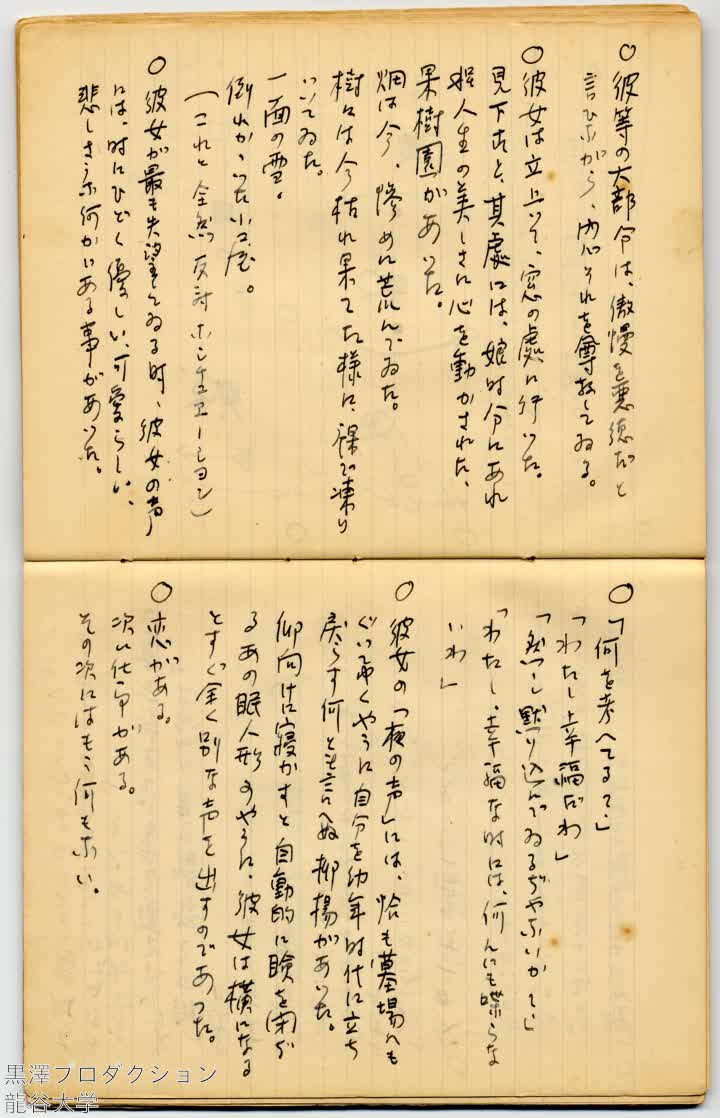 ○彼等の大部分は、傲慢を悪徳だと
言ひながら、内心それを尊敬してゐる。
○彼女は立上って、窓の處に行いた。
見下すと、其處には、娘時分にあれ
程人生の美しさに心を動かされた、
果樹園があった。
畑は今、惨めに荒んでゐた。
樹々は今枯れ果てた様に、裸で凍り
ついてゐた。
一面の雪。
倒れかゝった小屋。
(これと全然反対ホシチュエーション)
○彼女が最も失望してゐる時、彼女の声
には、時にひどく優しい、可愛らしい、
悲しさうな何かゞある事があった。
○「何を考へてるで」
「わたし幸福だわ」
「黙り込んでゐるぢやないか」
「わたし、幸福な時には、何んにも喋らな
いわ」
○彼女の「夜の声」には、恰も墓場へも
ぐって行くやうに自分を幼年時代に立ち
戻らす何とも言へぬ抑揚があった。
仰向けに寝かすと自動的に瞼を閉ぢ
るあの眠人形のやうに、彼女は横になる
とすぐ全く別な声を出すのであった。
○恋がある。
次に仕事がある。
その次にはもう何もない。
黒澤プロダクション
龍谷大学